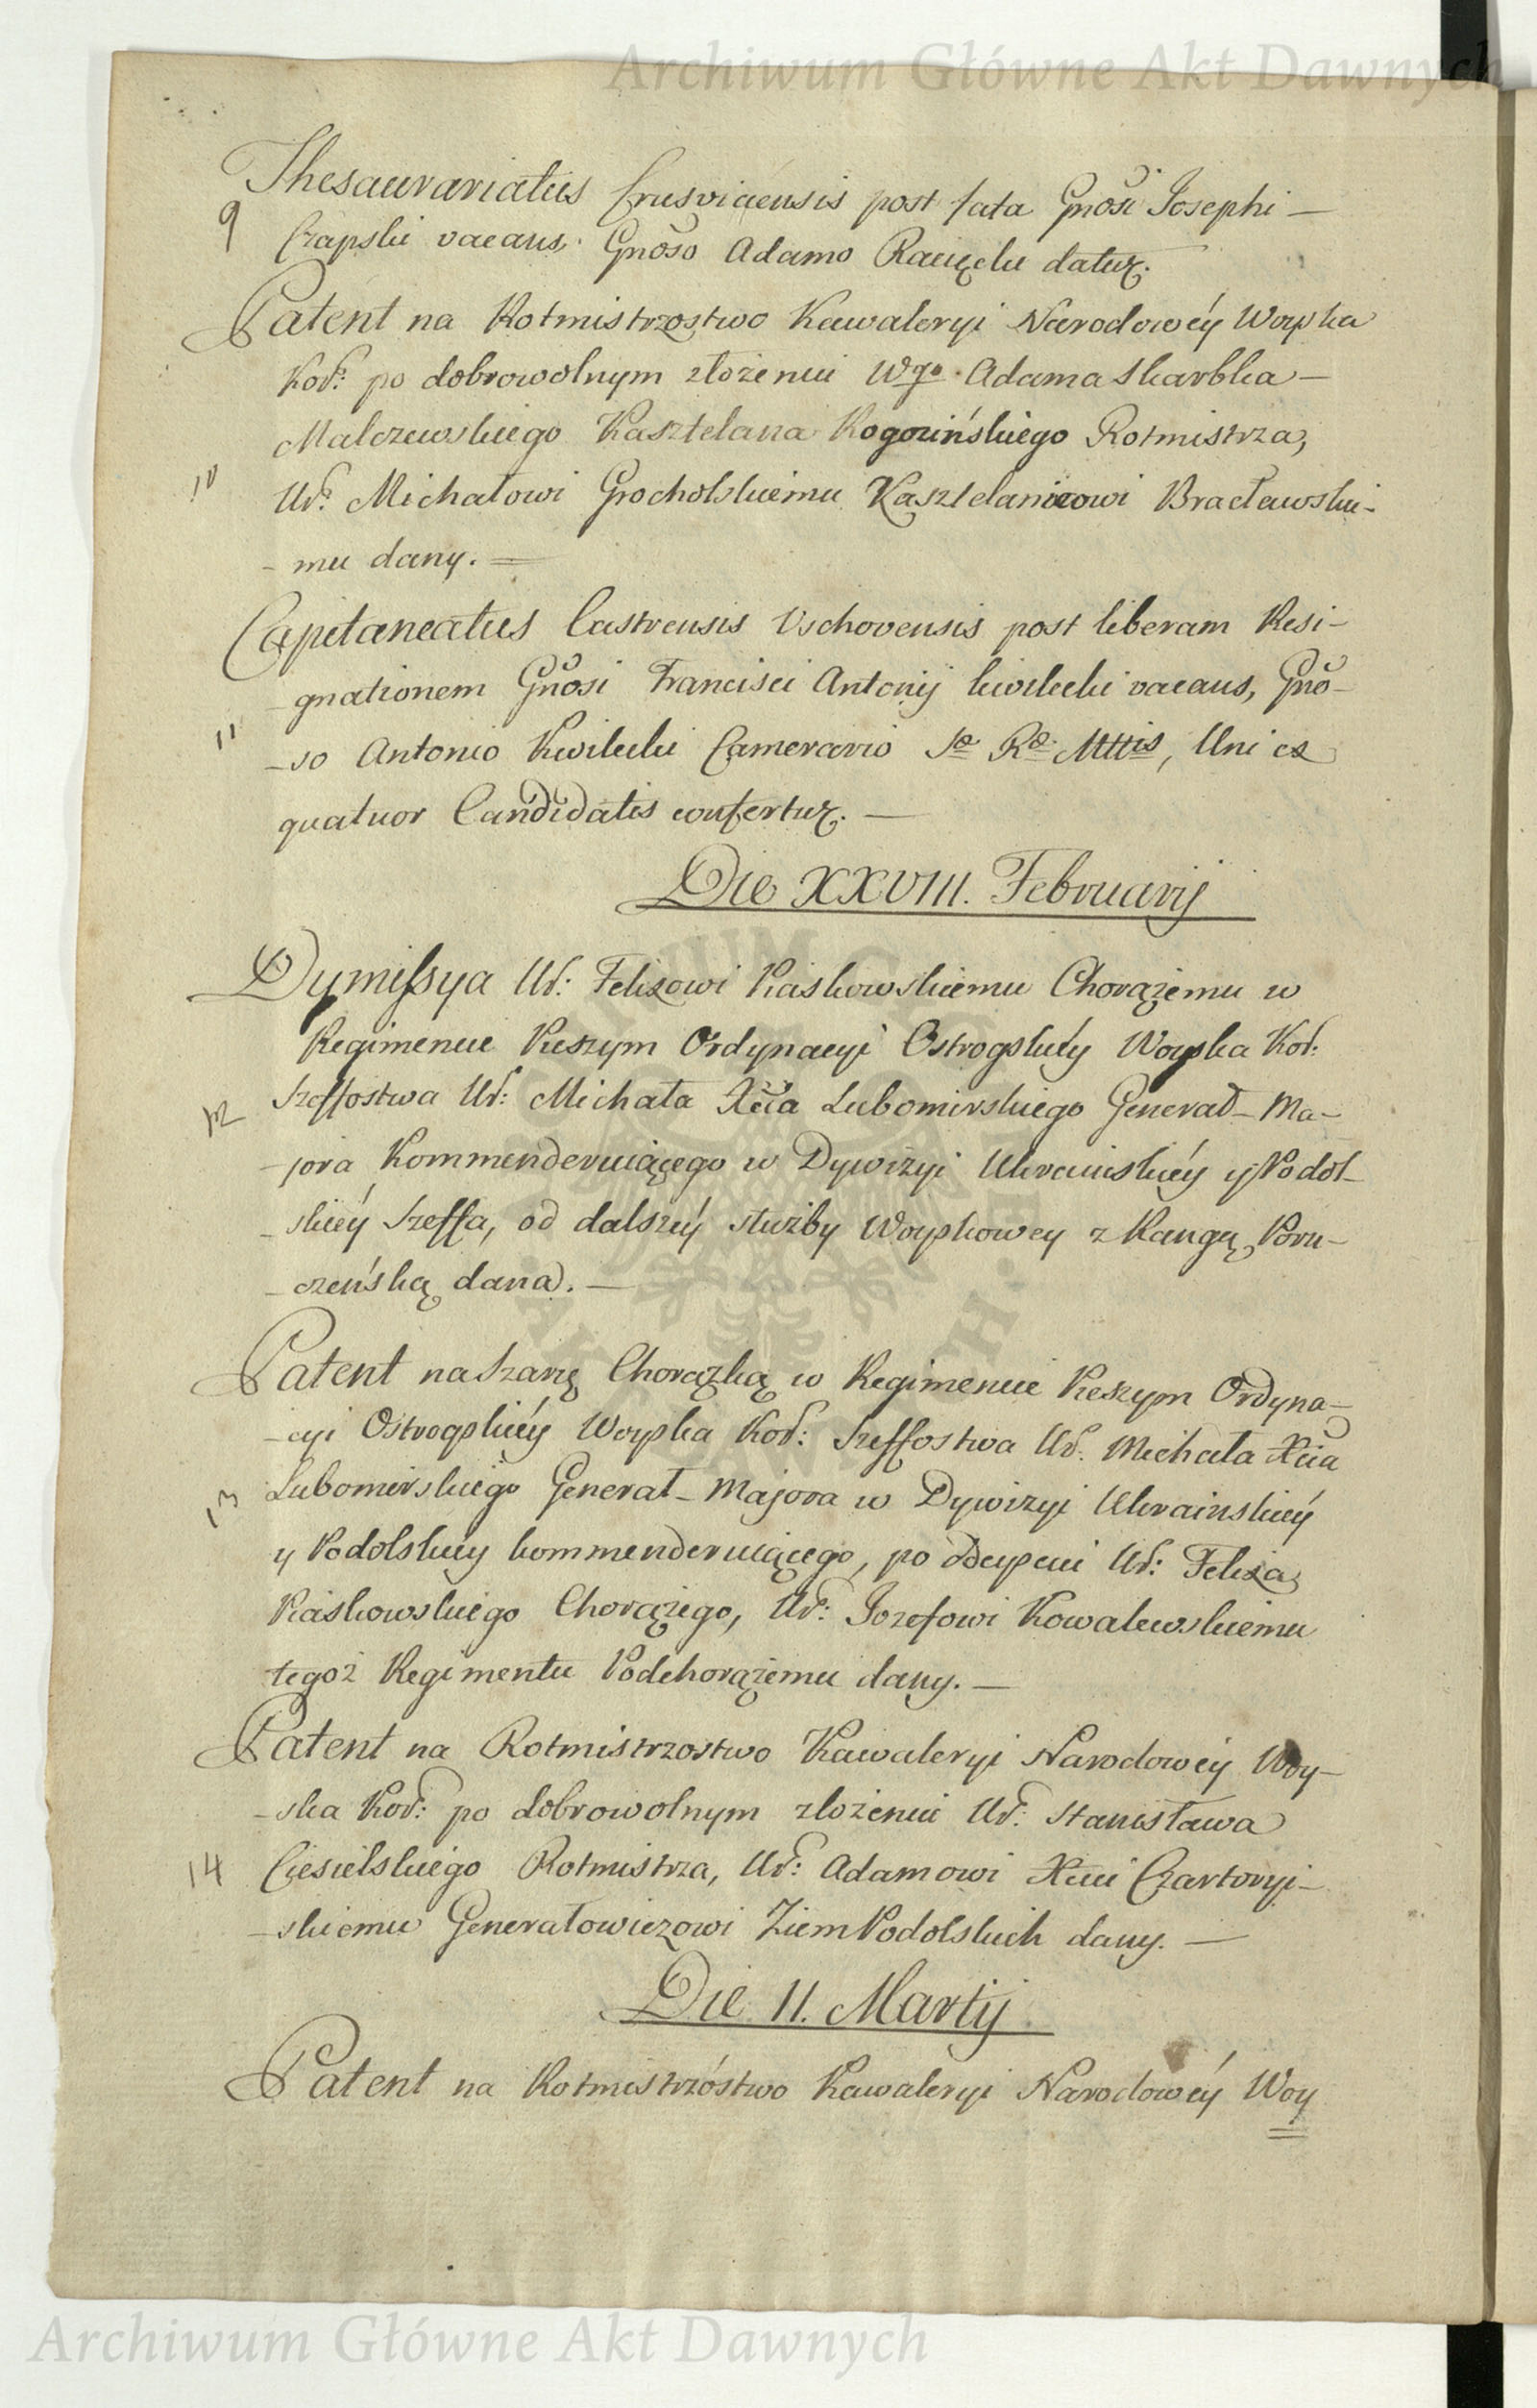 Archiwum Główne Akt Dawnych
Thesaurariatus Crusviciensis post fata Gnõsi Josephi –
9 Czapski vacans, Gnõso Adamo Racięcki datur.
Patent na Rotmistrzostwo Kawaleryi Narodowéy Woyska
Kor: po dobrowolnym złożeniu Wgo Adama Skarbka –
Malczewskiego Kasztelana Rogozińskiego Rotmistrza,
10 Ur: Michałowi Grocholskiemu Kasztelanicowi Bracławski-
- mu dany. =
Capitaneatus Castrensis Vschovensis post liberam Resi-
gnationem Gnõsi Francisci Antonij Kwilecki vacans, Gnõ-
11 - so Antonio Kwilecki Camerario Sæ Ræ Mttis, Uni ex
quatuor Candidatis confertur. —
Die XXVIII. Februarij
Dymissya Ur: Felixowi Piaskowskiemu Chorążemu w
Regimencie Pieszym Ordynacyi Ostrogskiéy Woyska Kor:
12 Szeffostwa Ur: Michała Xcia Lubomirskiego Generał-Ma-
- jora Kommenderuiącego w Dywizyi Ukrainskiéy y Podol-
- skiéy Szeffa, od dalszéy służby Woyskowey z Rangą Poru-
- czeńską dana. —
Patent na Szarżę Chorążką w Regimencie Pieszym Ordyna-
- cyi Ostrogskiéy Woyska Kor: Szeffostwa Ur: Michała Xcia
13 Lubomirskiego Generał-Majora w Dywizyi Ukrainskiéy
y Podolskiey kommenderuiącego, po odeyściu Ur: Felixa
Piaskowskiego Chorążego, Ur: Jozefowi Kowalewskiemu
tegoż Regimentu Podchorążemu dany. —
Patent na Rotmistrzostwo Kawaleryi Narodowéy Woy-
- ska Kor: po dobrowolnym złożeniu Ur: Stanisława
14 Ciesielskiego Rotmistrza, Ur: Adamowi Xciu Czartoryi-
- skiemu Generałowiczowi Ziem Podolskich dany. —
Die 11. Martij
Patent na Rotmistrzóstwo Kawaleryi Narodowéy Woy
Archiwum Główne Akt Dawnych